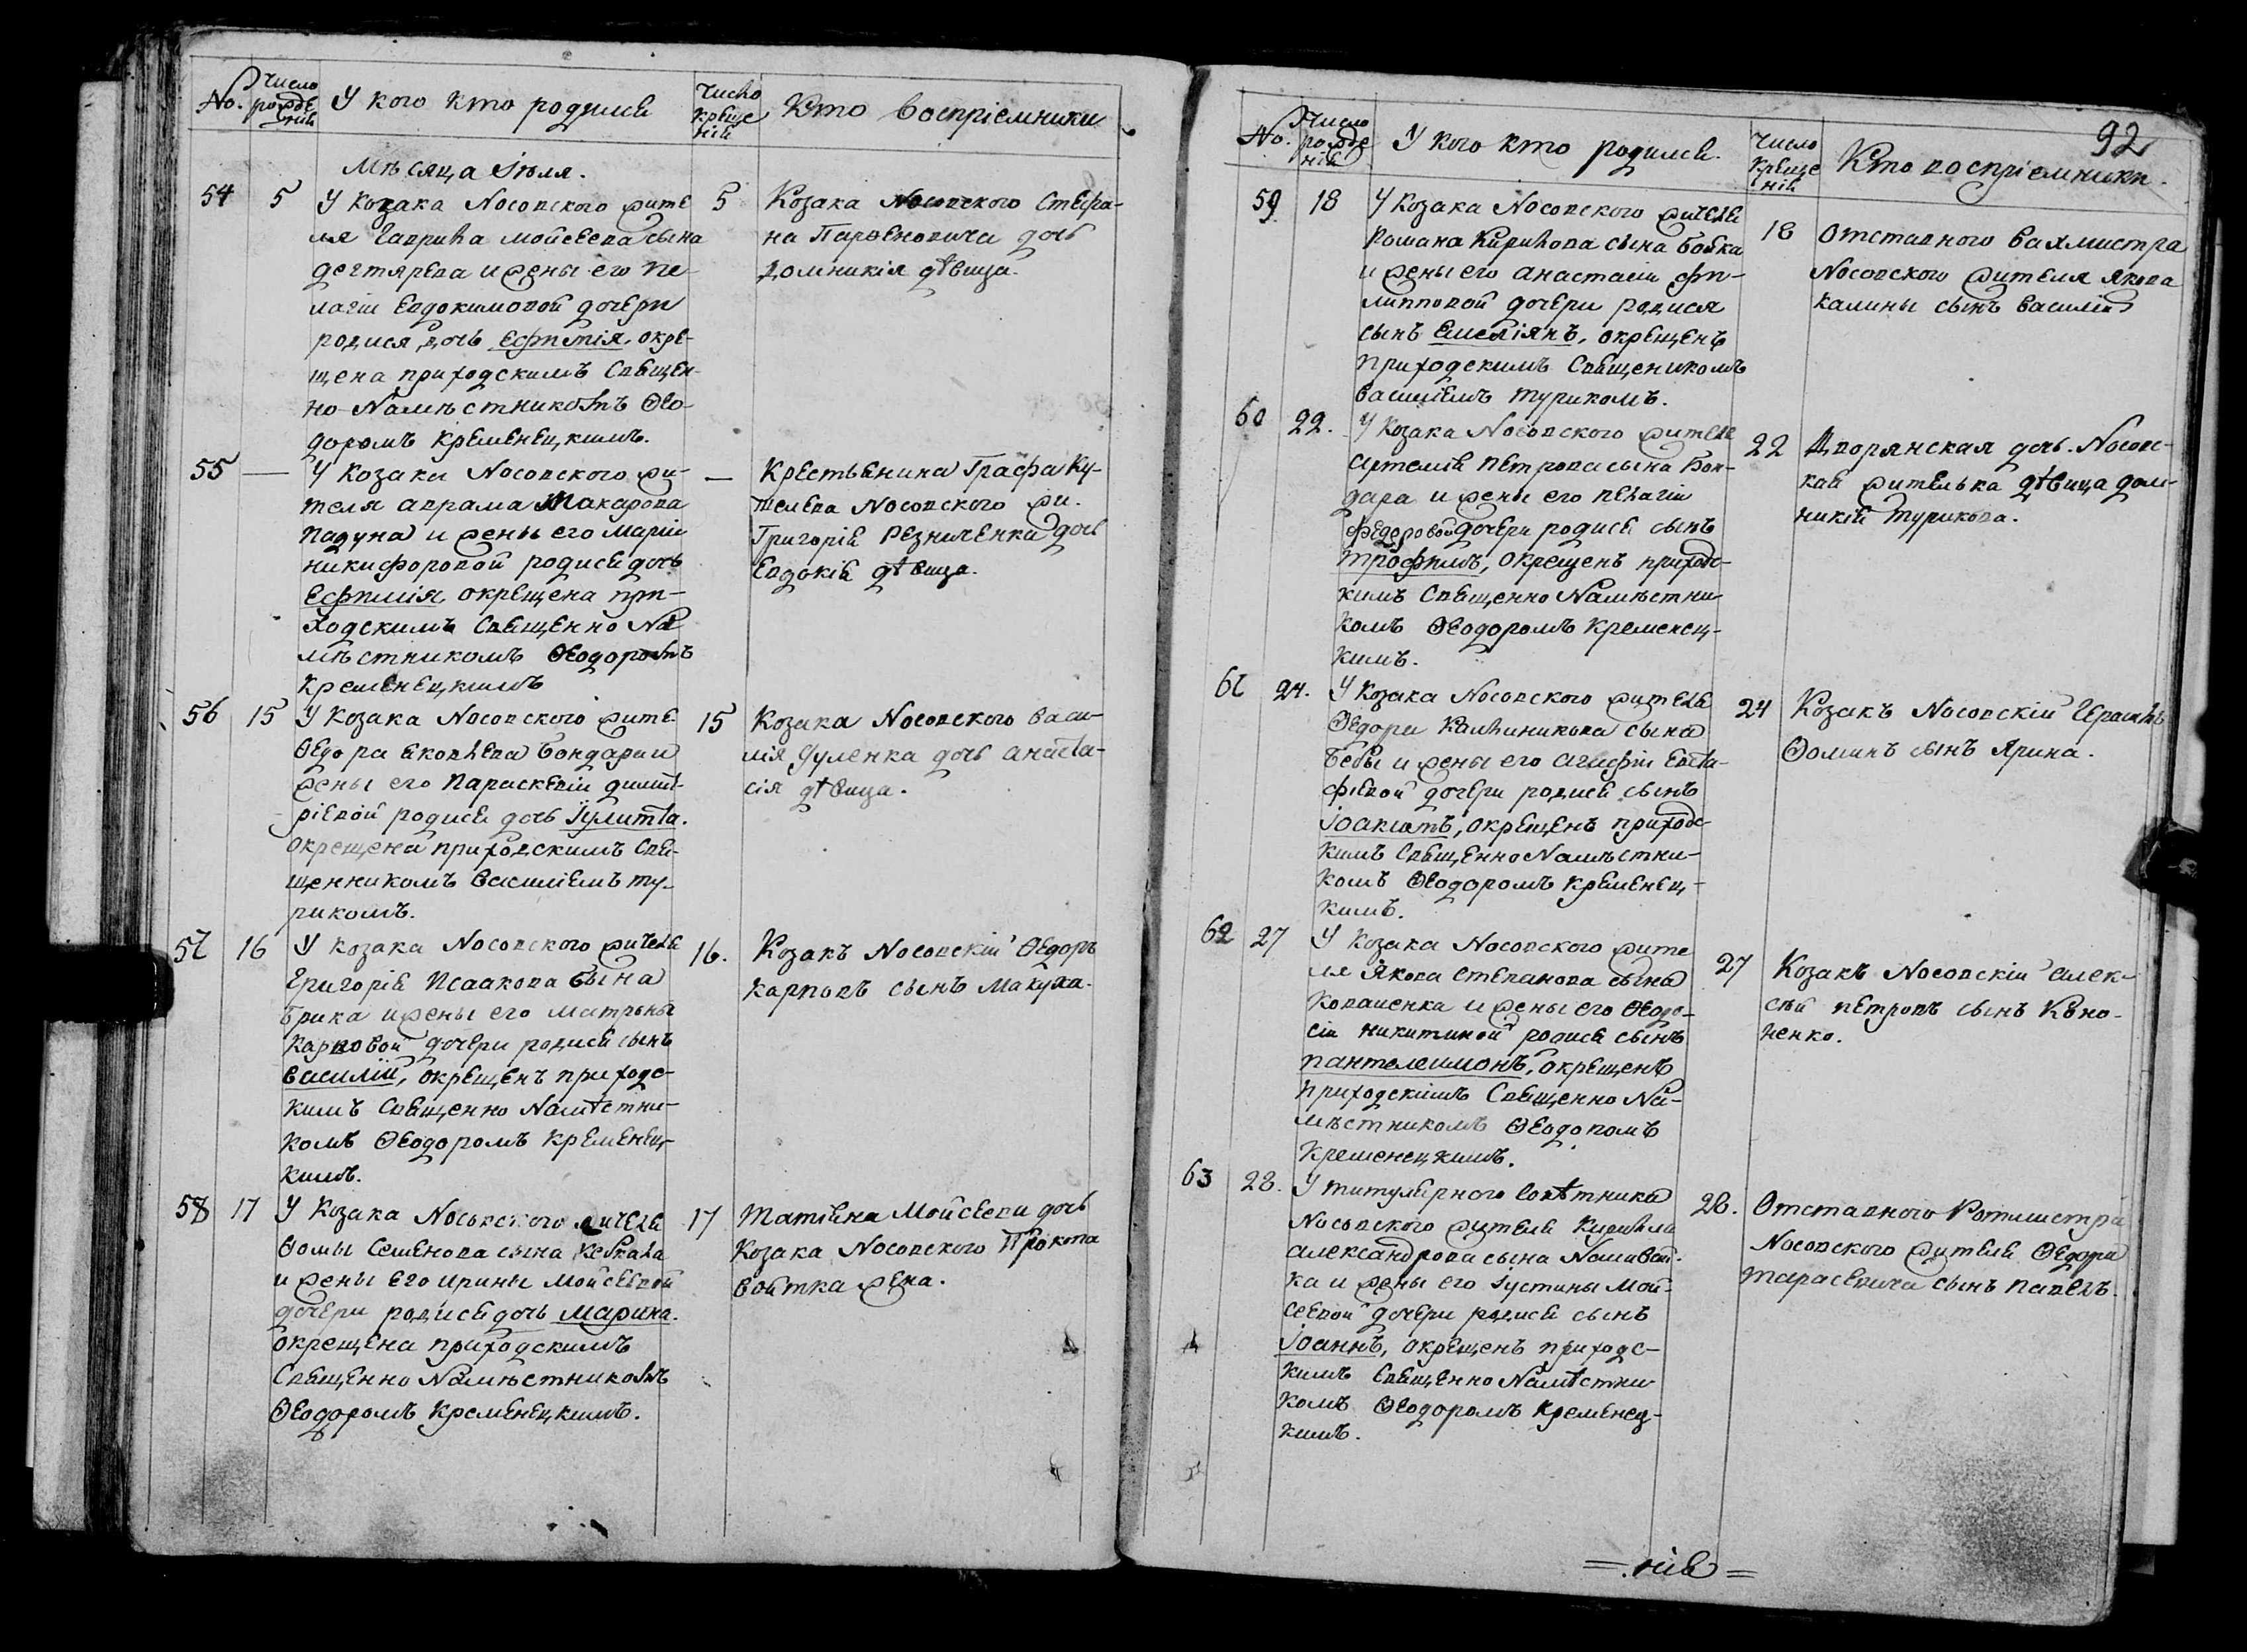 No. Число рожденія У кого кто родился Число крещенія Кто воспріемники
Мѣсяца Іюля.
54 5 У Козака Носовского жите-
ля Гаврила Мойсеева сына
дегтярева и жены его Пе-
лагіи Евдокимовой дочери
родися дочь Ефимія, окре-
щена приходскимъ Священ-
но-Намѣстникомъ Ѳео-
доромъ Кременецкимъ.
5 Козака Носовского Стефа-
на Парѳеновича дочь
Домникія дѣвица.
55 — У Козака Носовского жи-
теля Аврама Макарова
Падуна и жены его Маріи
Никифоровой родися дочь
Ефимія, окрещена при-
ходскимъ Священно На-
мѣстникомъ Ѳеодоромъ
Кременецкимъ
— Крестьянина Графа Ку-
шелева Носовского жи.
Григорія Резниченка дочь
Евдокія дѣвица.
56 15 У Козака Носовского жите.
Ѳедора Яковлева Бондара и
жены его Параскевіи димит-
ріевой родися дочь Іулитта.
окрещена приходскимъ Свя-
щенникомъ Василіемъ Ту-
рикомъ.
15 Козака Носовского Васи-
лія дочь Анаста-
сія дѣвица.
57 16 У Козака Носовского жителя
Григорія Исаакова сына
Брика и жены его Матроны
Карповой дочери родися сынъ
Василій, окрещенъ приходс-
кимъ Священно Намѣстни-
комъ Ѳеодоромъ Кременец-
кимъ.
16. Козакъ Носовскій Ѳедоръ
Карповъ сынъ Макуха.
58 17 У Козака Носовского жителя
Ѳомы Семенова сына
и жены его Ирины Мойсеевой
дочери родися дочь Марина.
окрещена приходскимъ
Священно Намѣстникомъ
Ѳеодоромъ Кременецкимъ.
17 Татіяна Мойсеева дочь
Козака Носовского Прокопа
Войтка жена.
92
No. Число рожденія У кого кто родился. Число крещенія Кто воспріемники.
59 18 У Козака Носовского жителя
Романа Кирилова сына Бобка
и жены его Анастасіи Фи-
липповой дочери родися
сынъ Емеліянъ, окрещенъ
приходскимъ Священикомъ
Василіемъ Турикомъ.
18 Отставного Вахмистра
Носовского жителя Якова
Калины сынъ Василій
60 22. У Козака Носовского жителя
Артемія Петрова сына Бон-
дара и жены его Пелагіи
Федоровой дочери родися сынъ
Трофимъ, окрещенъ приходс-
кимъ Священно Намѣстни-
комъ Ѳеодоромъ Кременец-
кимъ.
22 Дворянская дочь. Носовс-
кая жителька дѣвица дом-
никія Турикова.
61 24. У Козака Носовского жителя
Ѳедора Калиникова сына
Бебы и жены его Агафіи Евста-
фіевой дочери родися сынъ
Іоакимъ, окрещенъ приходс-
кимъ Священно Намѣстни-
комъ Ѳеодоромъ Кременец-
кимъ.
24 Козакъ Носовскій Герасимъ
Ѳоминъ сынъ Ярина.
62 27 У Козака Носовского жите
ля Якова Степанова сына
Коваленка и жены его Ѳеодо-
сіи Никитиной родися сынъ
Пантелеимонъ, окрещенъ
приходскимъ Священно На-
мѣстникомъ Ѳеодоромъ
Кременецкимъ.
27 Козакъ Носовскій Алек-
сѣй Петровъ сынъ Коно-
ненко.
63 28. У титулярного Совѣтника
Носовского жителя Кирилла
Александрова сына
ка и жены его Іустины Мой-
сеевой дочери родися сынъ
Іоаннъ, окрещенъ приходс-
кимъ Священно Намѣстни
комъ Ѳеодоромъ Кременец-
кимъ.
28. Отставного Ротмистра
Носовского жителя Ѳедора
Тарасевича сынъ Павелъ.